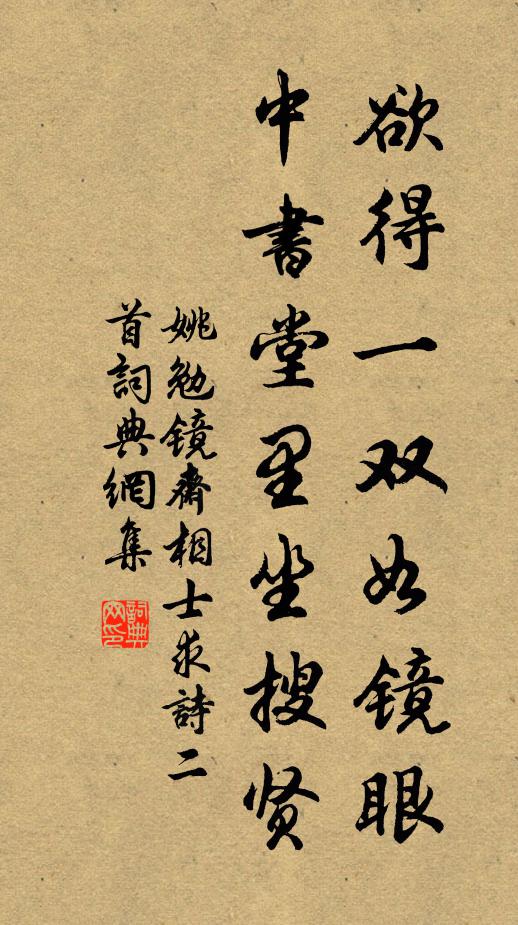 欲得一双如镜眼
中書堂里坐搜贤
姚勉镜齋相士求詩二
首詞典網集
詞典
网印